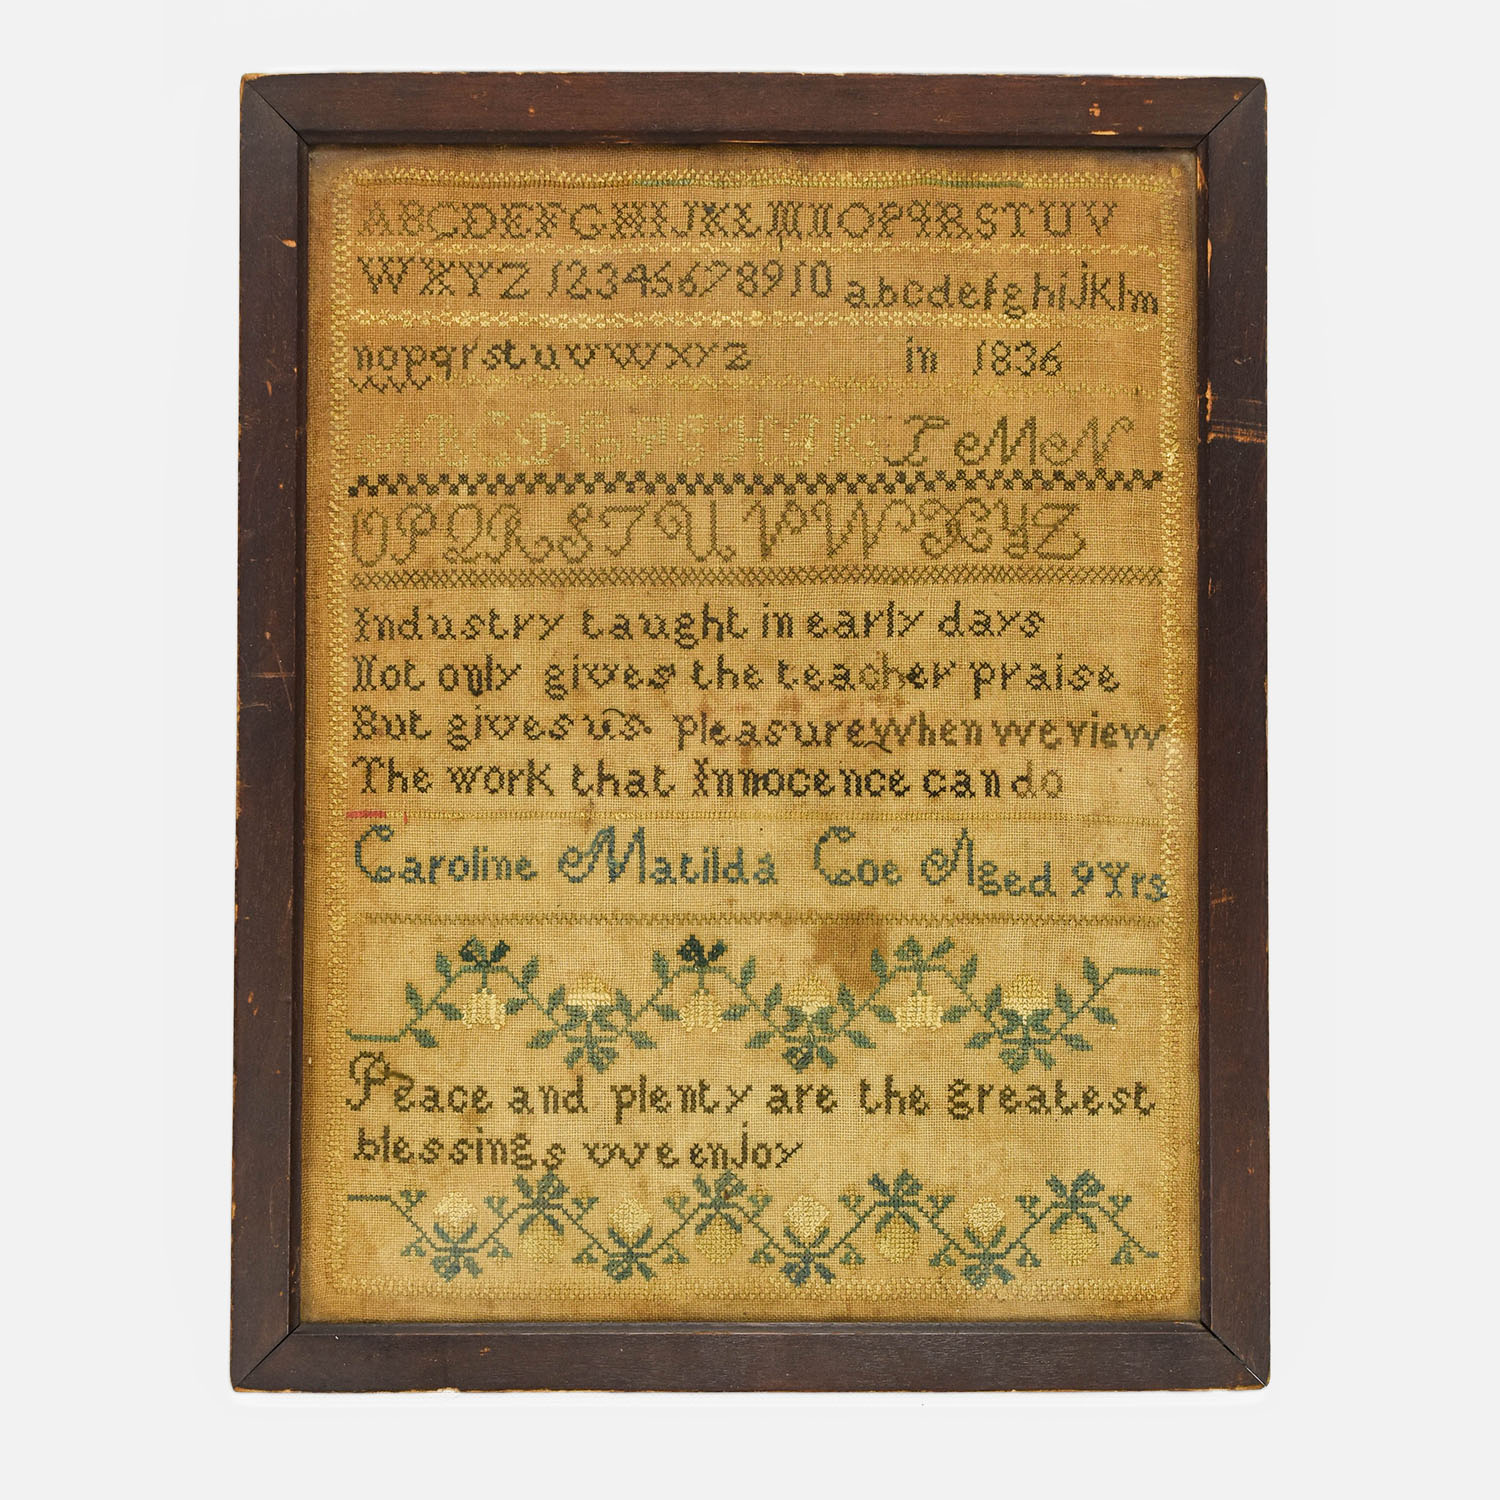 ABCDEFGHIJKLMNOPQRSTUV
WXYZ 12345678910 abcdefghijklm
nopqrstuvwxyz in 1836
ABCDEFGHIK L M N
OPQRSTUVWXYZ
Industry taught in early days
Not only gives the teacher praise
But gives us pleasure when we view
The work that Innocence can do
Caroline Matilda Coe Aged 9 Yrs
Peace and plenty are the greatest
blessings we enjoy